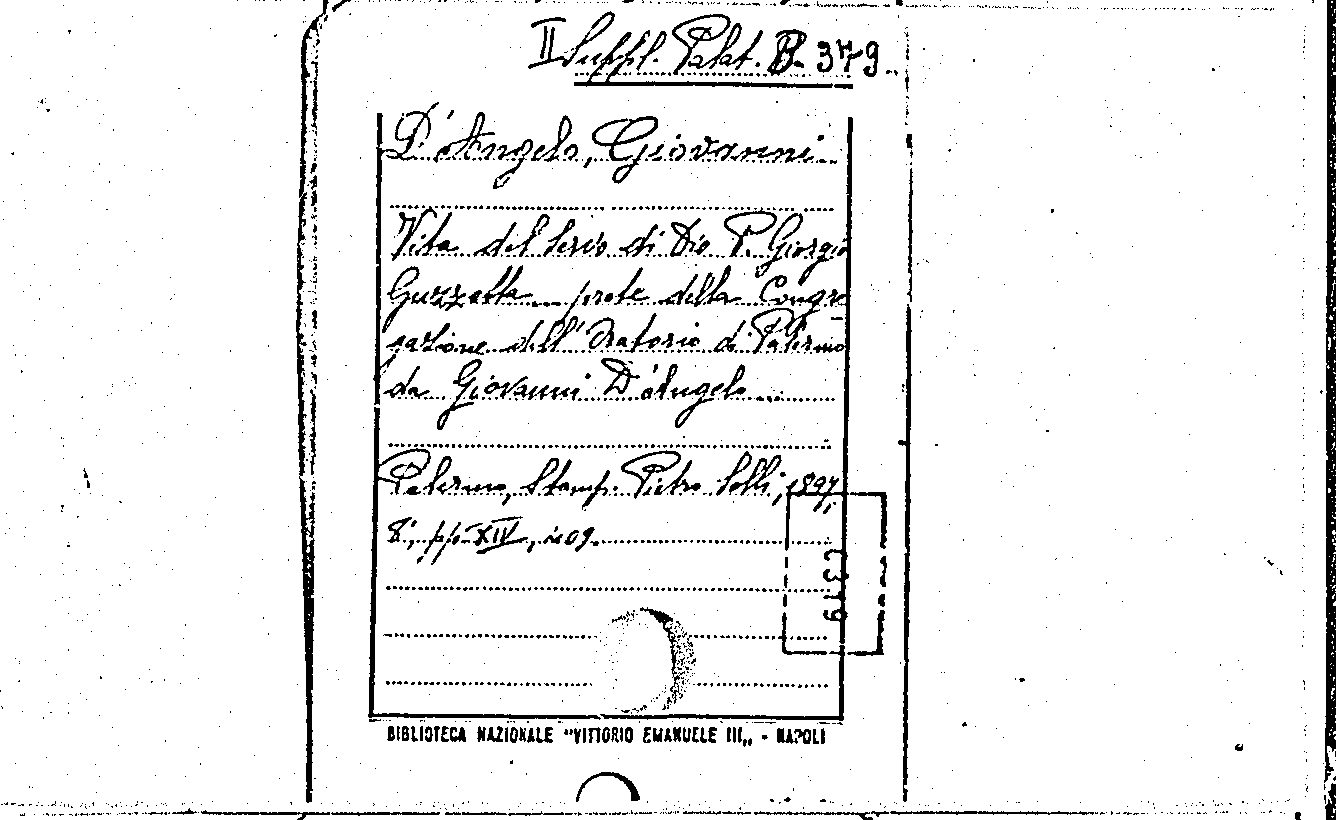 II Suppl. Palat. B. 379.
D'Angelo, Giovanni
Vita del Servo di Dio P. Giorgio
Guzzetta... prete della Congre
gazione dell'Oratorio di Palermo
da Giovanni D'Angelo...
Palermo, Stamp. Pietro
8°, pp. XIV,
BIBLIOTECA NAZIONALE "VITTORIO EMANUELE III„ - NAPOLI